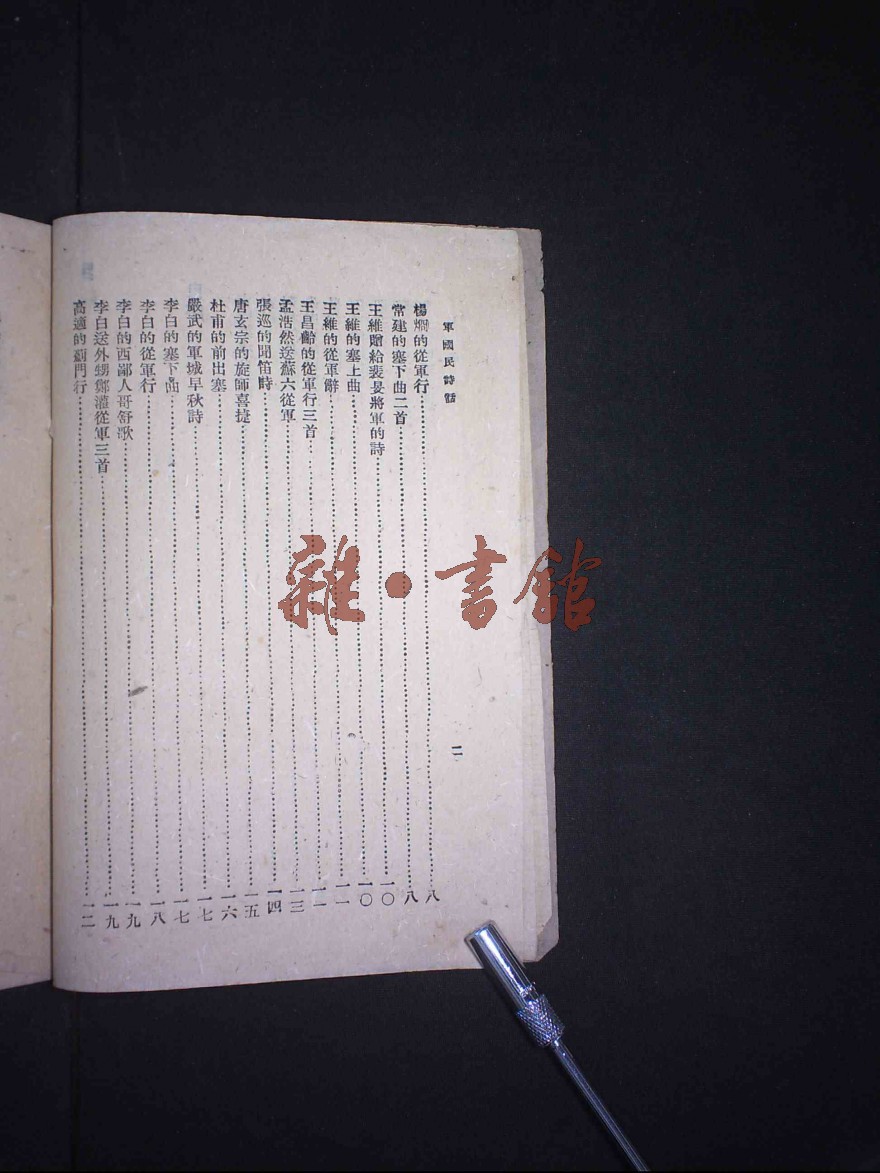 軍國民詩話
二
楊烱的從軍行…………八
常建的塞下曲二首…………八
王維贈給裴旻將軍的詩…………一〇
王維的塞上曲…………一〇
王維的從軍辭…………一一
王昌齡的從軍行三首…………一二
孟浩然送蘇六從軍…………一三
張巡的聞笛詩…………一四
唐玄宗的旋師喜捷…………一五
杜甫的前出塞…………一六
嚴武的軍城早秋詩…………一七
李白的塞下曲…………一七
李白的從軍行…………一八
李白的西鄙人哥舒歌…………一九
李白送外甥鄭灌從軍三首…………一九
高適的薊門行…………二二
雜·書館